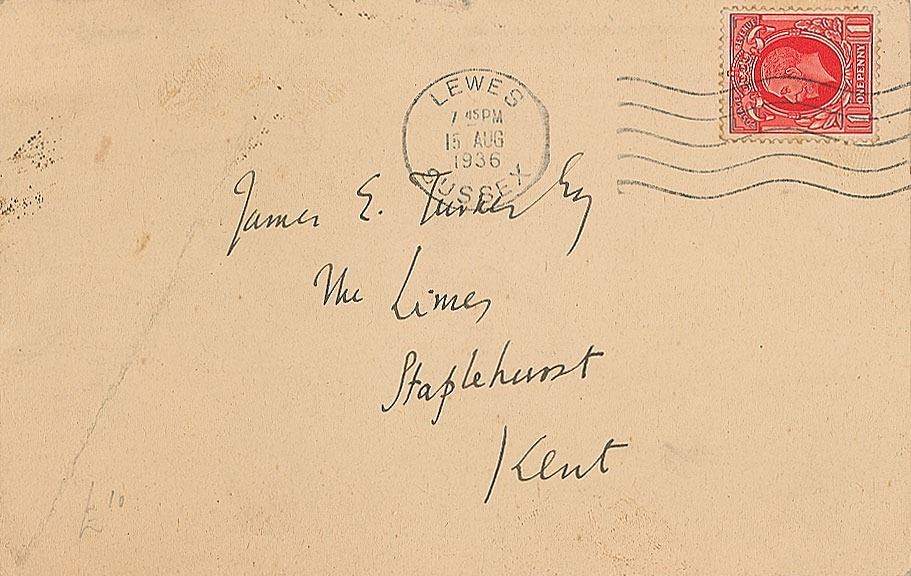 LEWES
7 45PM
15 AUG
1936
SUSSEX
POSTAGE REVENUE
1 ONE PENNY 1
James E. Turner Esq
The Limes
Staplehurst
Kent
£10